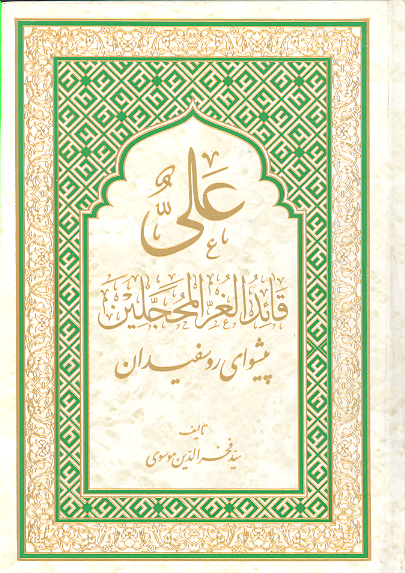 عَلیٌّ
ع
قَائِدُ الغُرِّ المُحَجَّلین
پیشوای روسفیدان
تألیف
سیّد فخرالدین موسوی